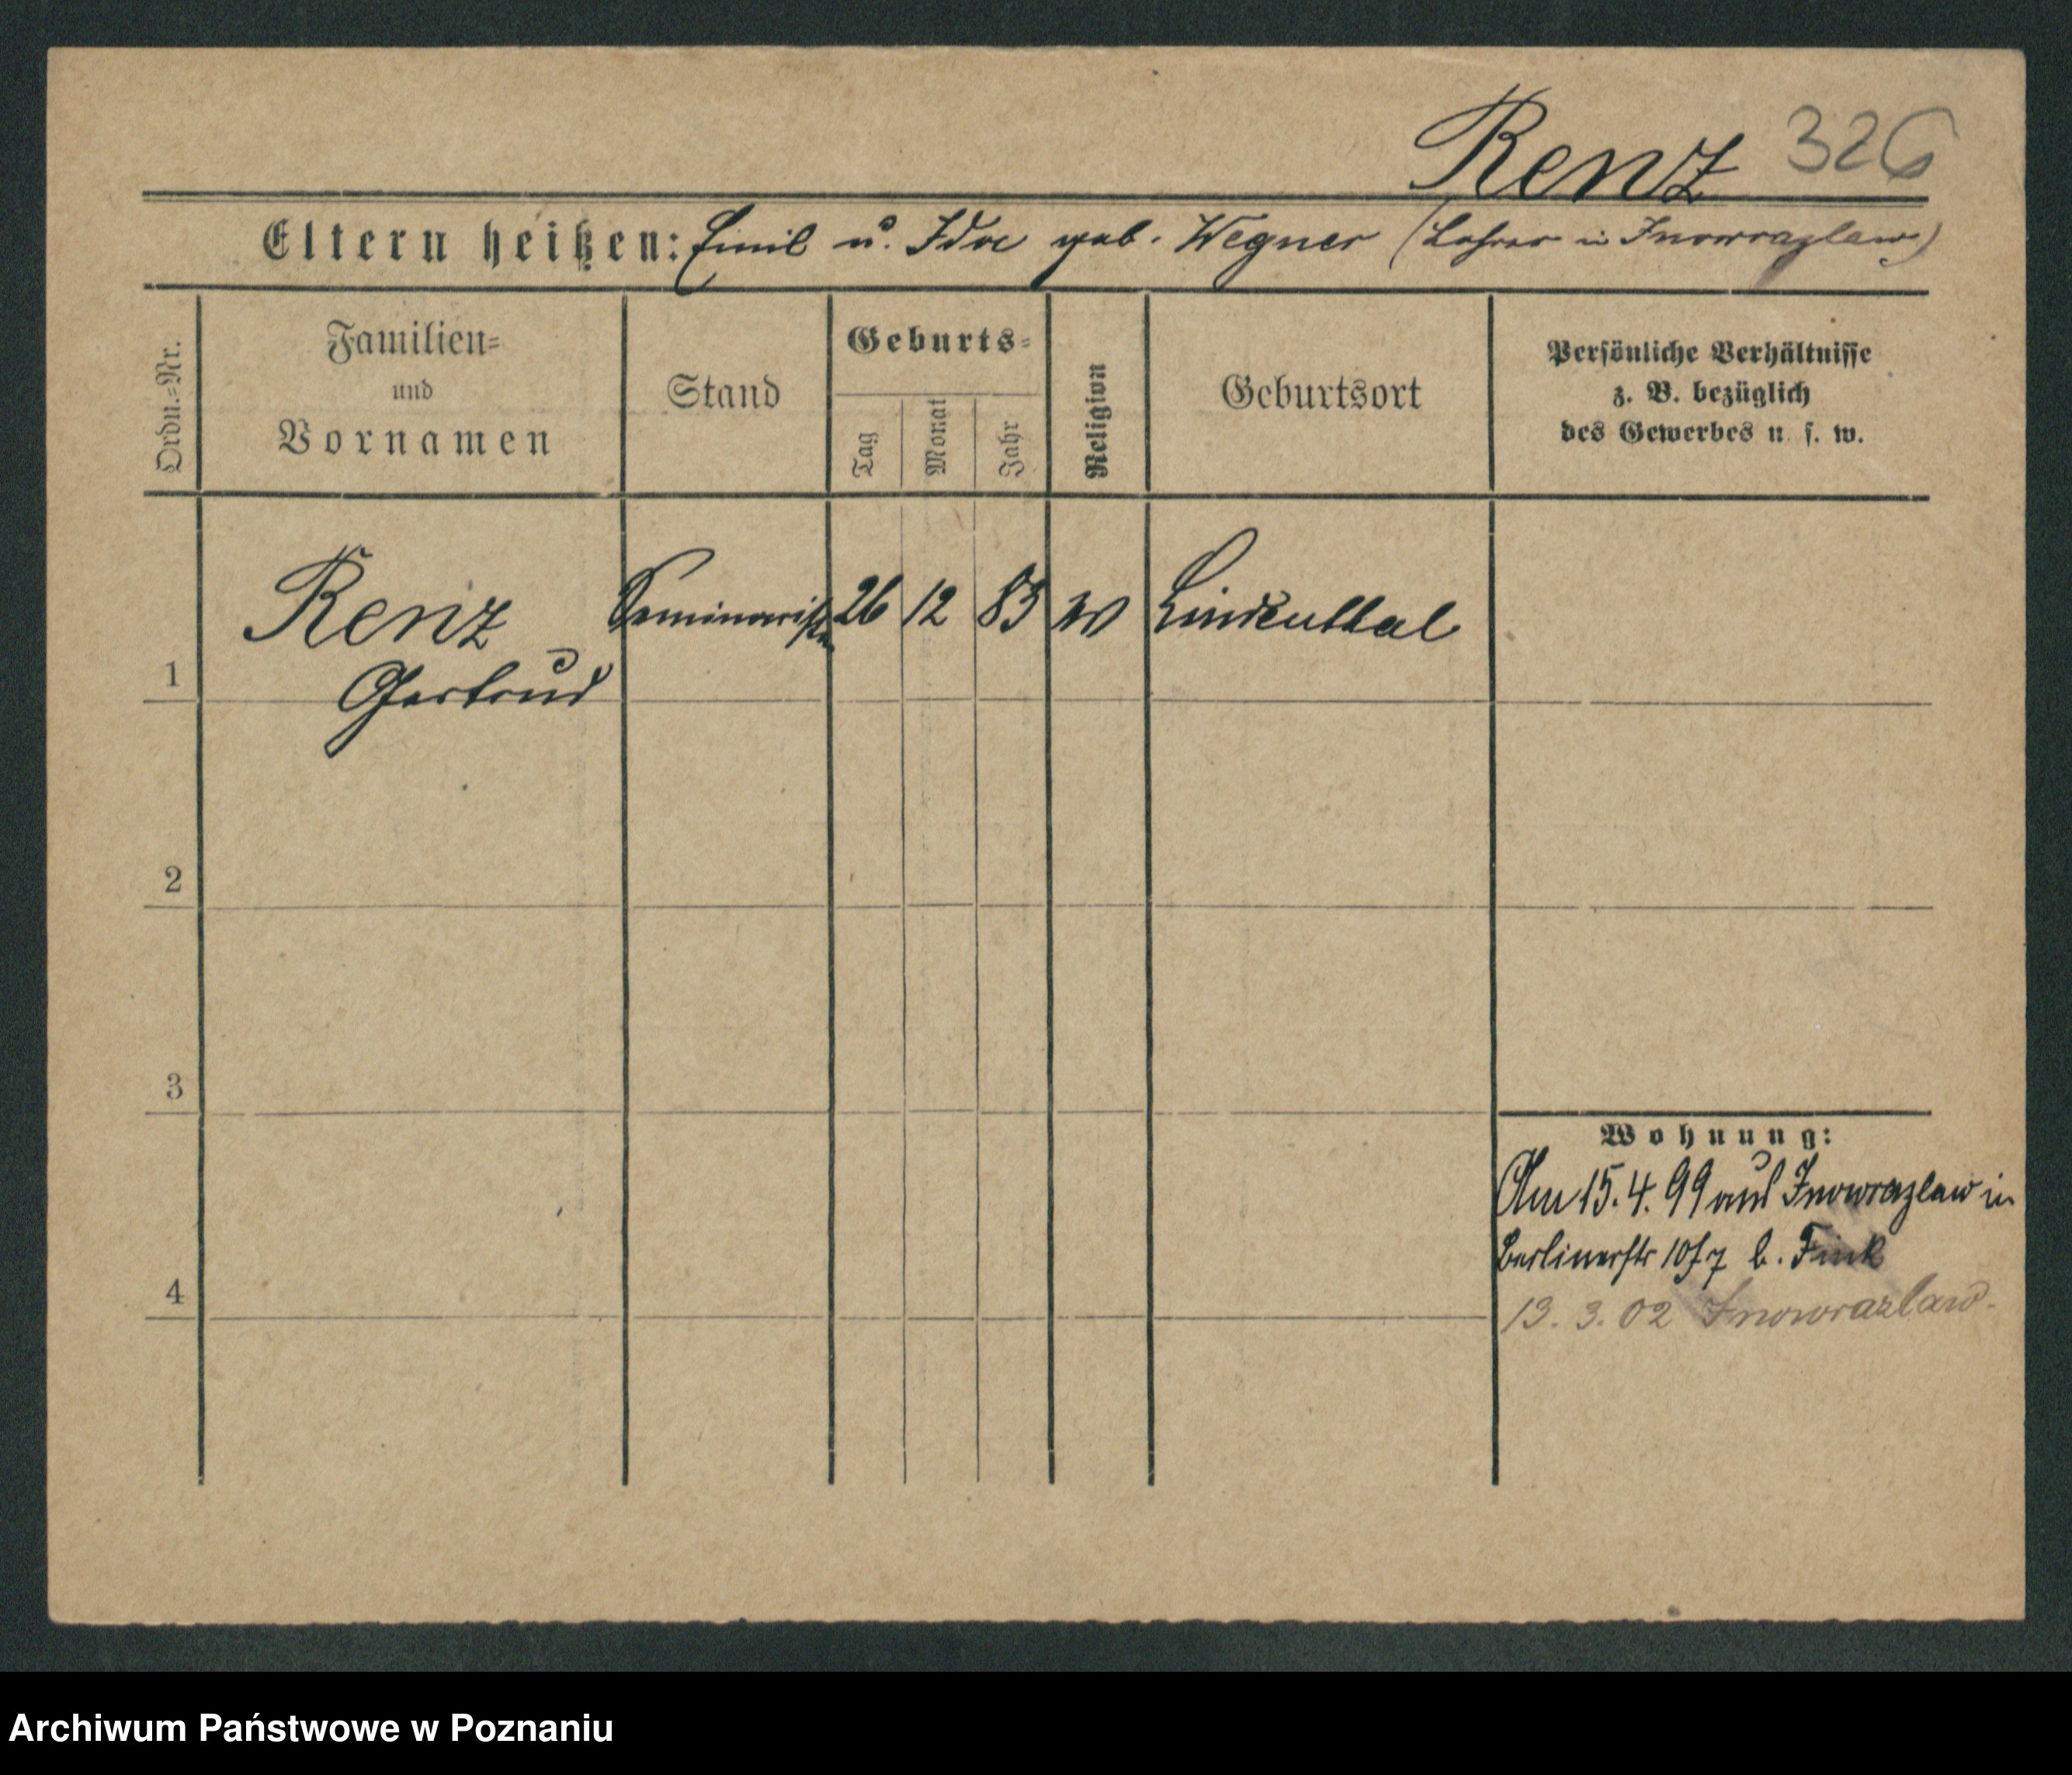 Renz 326
Eltern heißen: Emil u. Ida geb. Wegner (Lehrer in Inowrazlaw)
Ordn.-Nr.
Familien-
und
Vornamen
Stand
Geburts-
Tag
Monat
Jahr
Religion
Geburtsort
Persönliche Verhältnisse
z. B. bezüglich
des Gewerbes u. s. w.
1 Renz Seminaristin 26 12 83 Lindenthal
Gertrud
2
3
4
Wohnung:
Am 15.4.99 aus Inowrazlaw in
Berlinerstr 10 b. Fink
13. 3. 02 Inowrazlaw.
Archiwum Państwowe w Poznaniu